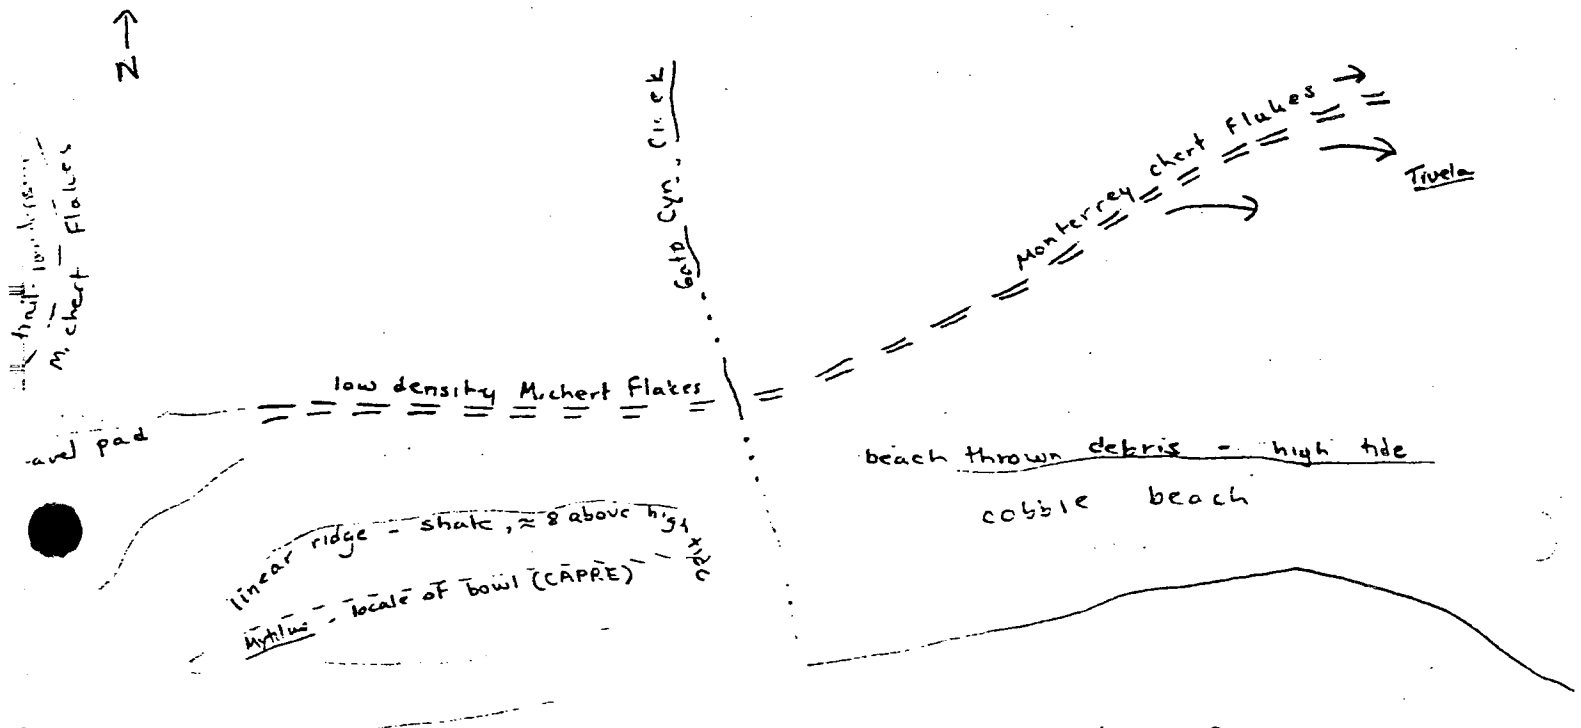 N
M. chert Flakes
Gato Cyn. Creek
Monterrey chert Flakes
Tivela
low density M.chert Flakes
pad
beach thrown debris - high tide
cobble beach
linear ridge - shale, ≈ 8 above high tide
Mytilus - locale of bowl (CAPRE)